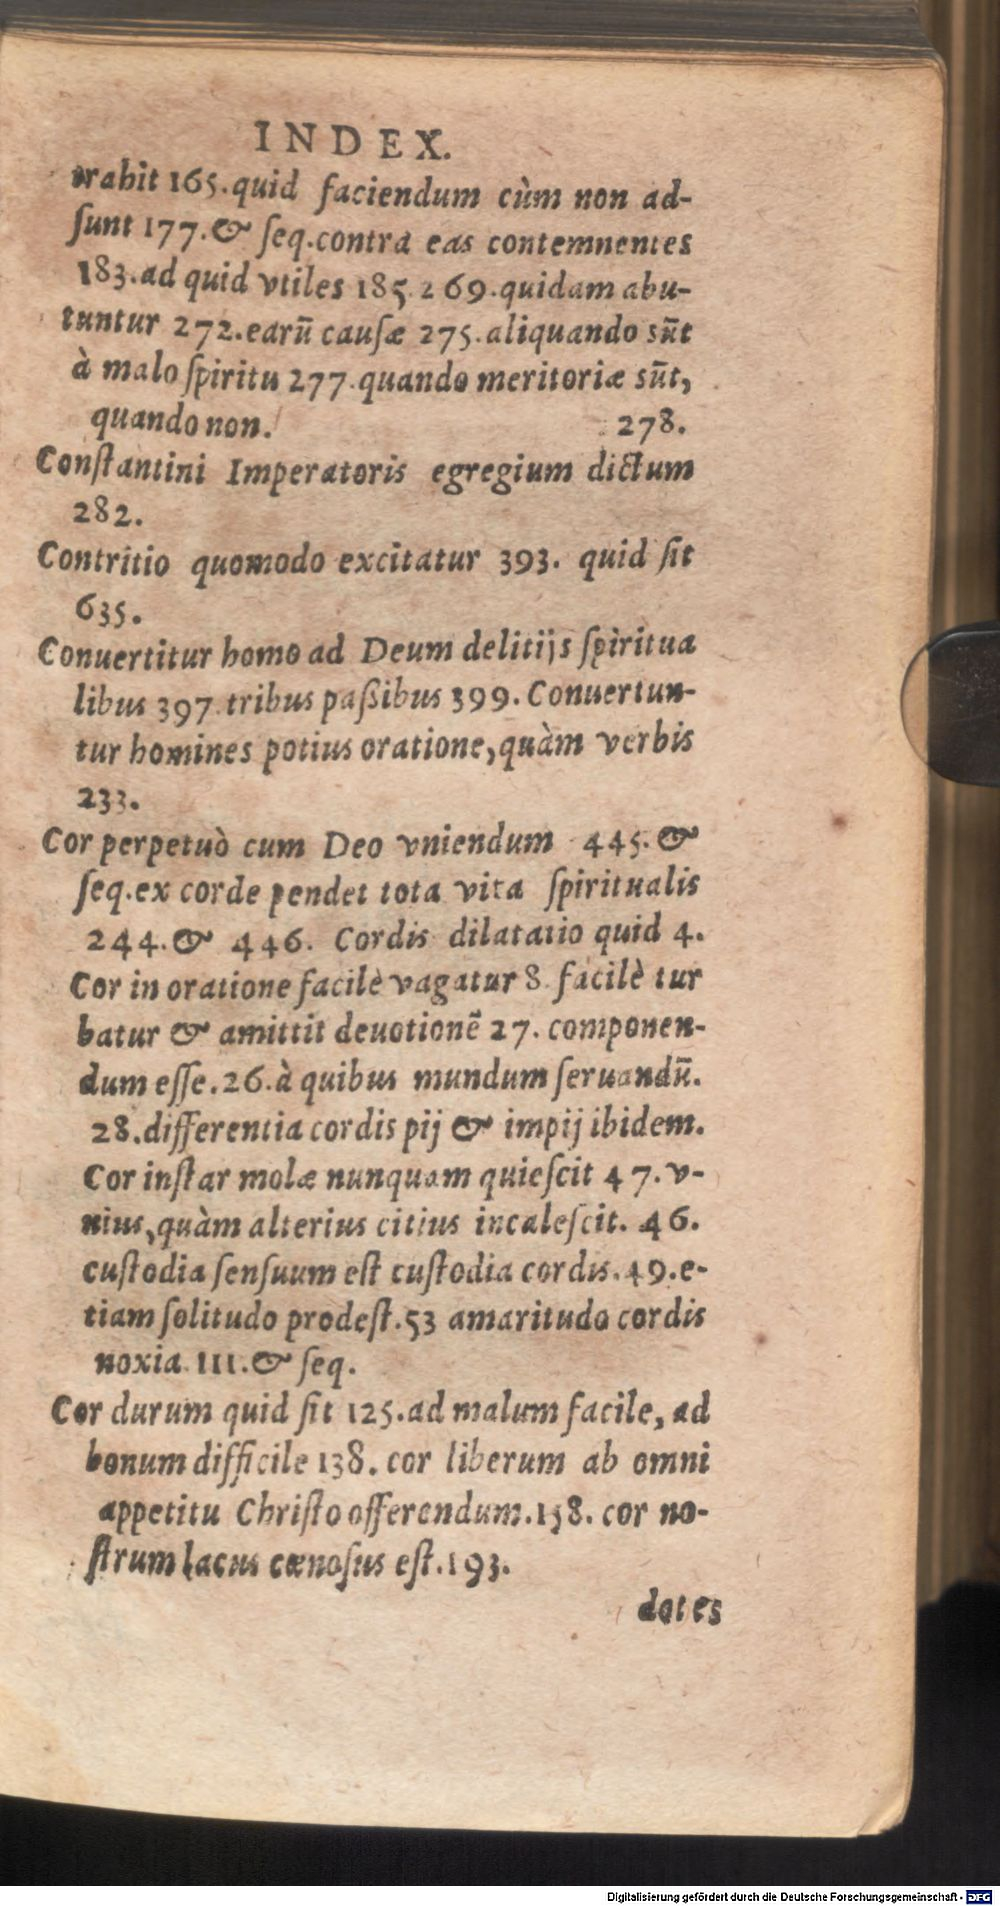 INDEX.
orabit 165. quid faciendum cùm non ad-
ſunt 177. & ſeq. contra eas contemnentes
183. ad quid vtiles 185. 269. quidam abu-
tuntur 272. earū cauſæ 275. aliquando sūt
à malo ſpiritu 277. quando meritoriæ sūt,
quando non. 278.
Conſtantini Imperatoris egregium dictum
282.
Contritio quomodo excitatur 393. quid ſit
635.
Conuertitur homo ad Deum delitijs ſpiritua
libus 397. tribus paßibus 399. Conuertun-
tur homines potius oratione, quàm verbis
233.
Cor perpetuò cum Deo vniendum 445. &
ſeq. ex corde pendet tota vita ſpiritualis
244. & 446. Cordis dilatatio quid 4.
Cor in oratione facilè vagatur 8. facilè tur
batur & amittit deuotionē 27. componen-
dum eſſe. 26. à quibus mundum ſeruandū.
28. differentia cordis pij & impij ibidem.
Cor inſtar molæ nunquam quieſcit 47. v-
nius, quàm alterius citius incaleſcit. 46.
cuſtodia ſenſuum eſt cuſtodia cordis. 49. e-
tiam ſolitudo prodeſt. 53 amaritudo cordis
noxia 111. & ſeq.
Cor durum quid ſit 125. ad malum facile, ad
bonum difficile 138. cor liberum ab omni
appetitu Chriſto offerendum. 138. cor no-
ſtrum lacus cœnoſus eſt. 193.
dotes
Digitalisierung gefördert durch die Deutsche Forschungsgemeinschaft - DFG